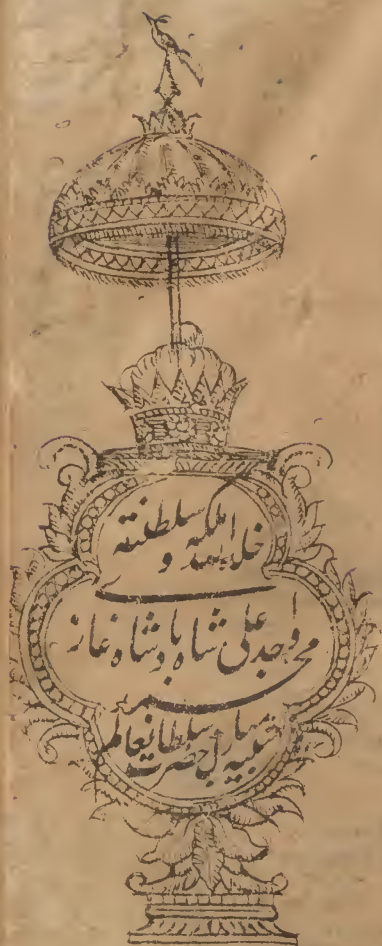 خلد الله ملکه و سلطنته
محمد واجد علی شاه بادشاه غازی
شبیه مبارک حضرت سلطانعالم